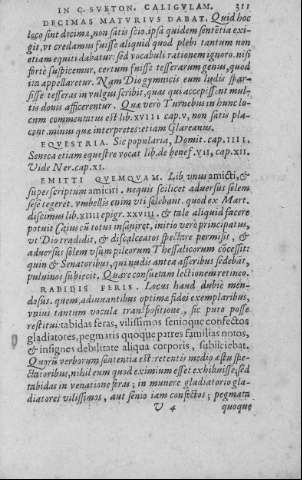 IN C. SVETON. CALIGVLAM. 311
DECIMAS MATVRIVS DABAT. Quid hoc
loco sint decima, non satis scio. ipsa quidem sententia exi-
git, vt credamus fuisse aliquid quod plebi tantum non
etiam equiti dabatur: sed vocabuli rationem ignoro. nisi
fortè suspicemur, certum fuisse tesserarum genus, quod
ita appellaretur. Nam Dio gymnicis eum ludis spar-
sisse tesseras in vulgus scribit, quas qui accepissent mul-
tis donis afficerentur. Quæ vero Turnebus in hunc lo-
cum commentatus est lib. XVIII cap. V, non satis pla-
cent. minus quæ interpretes: etiam Glareanus.
EQVESTRIA. Sic popularia, Domit. cap. IIII.
Seneca etiam equestre vocat lib. de benef. VII, cap. XII.
Vide Ner. cap. XI.
EMITTI QVEMQVAM. Lib vnus amicti, &
superscriptum amiciri. nequis scilicet aduersus solem
sese tegeret. vmbellis enim vti solebant. quod ex Mart.
discimus lib. XIIII epigr. XXVIII. & tale aliquid facere
potuit Caius cùm totus insaniret, initio verò principatus,
vt Dio tradidit, & discalceatos spectare permisit, &
aduersus solem vsum pileorum Thessalicorum cōcessit
quin & Senatoribus, qui nudis antea asseribus sedebāt,
puluinos subiecit. Quare consuetam lectionem retineo.
RABIDIS FERIS. Locus haud dubiè men-
dosus. quem, adiuuantibus optimæ fidei exemplaribus,
vnius tantum voculæ transpositione, sic puto posse
restitui: tabidas feras, vilissimos senioque confectos
gladiatores, pegmatis quoque patres familias notos,
& insignes debilitate aliqua corporis, subiiciebat.
Quarū verborum sententia est: retentis medio æstu spe-
ctatoribus, nihil eum quod eximium esset exhibuisse, sed
tabidas in venatione feras; in munere gladiatorio gla-
diatores vilissimos, aut senio iam confectos; pegmata
V 4 quoque